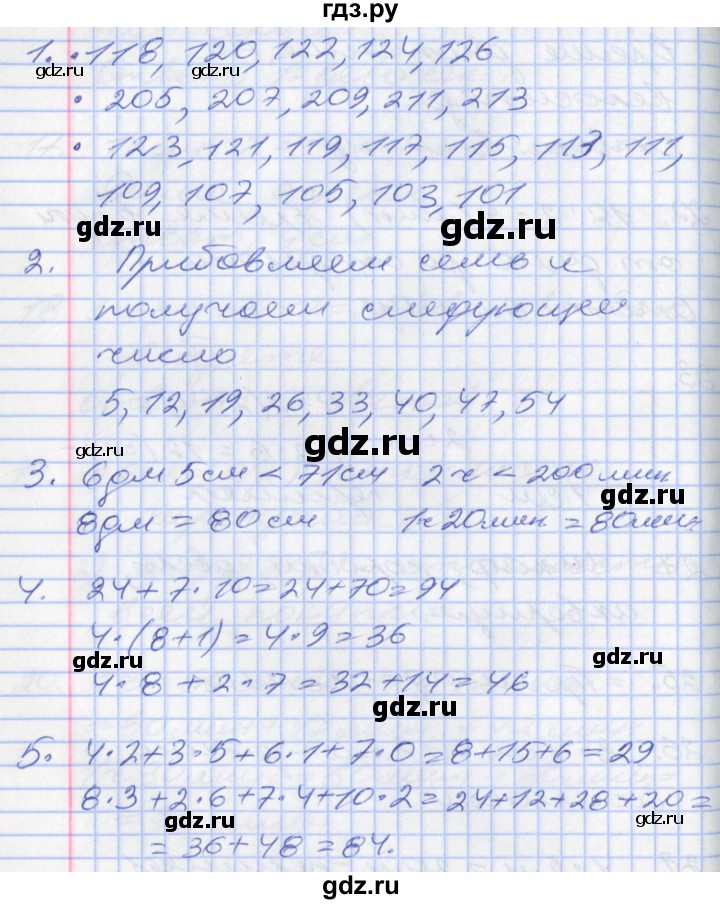 гдз.ру
1. • 118, 120, 122, 124, 126
• 205, 207, 209, 211, 213
• 123, 121, 119, 117, 115, 113, 111,
109, 107, 105, 103, 101
gdz.ru gdz.ru
2. Прибавляем семь и
получаем следующее
число
5, 12, 19, 26, 33, 40, 47, 54
gdz.ru gdz.ru
3. 6дм 5см < 71см 2ч < 200мин
gdz.ru
8дм = 80см 1ч 20мин = 80мин
4. 24 + 7 · 10 = 24 + 70 = 94
4 · (8 + 1) = 4 · 9 = 36
gdz.ru gdz.ru
4 · 8 + 2 · 7 = 32 + 14 = 46
gdz.ru
5. 4 · 2 + 3 · 5 + 6 · 1 + 7 · 0 = 8 + 15 + 6 = 29
8 · 3 + 2 · 6 + 7 · 4 + 10 · 2 = 24 + 12 + 28 + 20 =
gdz.ru gdz.ru
= 36 + 48 = 84.
gdz.ru